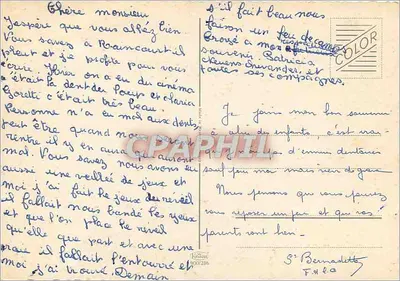 Chère monsieur
j'espère que vous allez bien
Vous savez à Raincourt il
pleut et je profite pour vous
écrire. Hier on a eu du cinéma
c'était la dent du loup et maria
Goretti c'était très beau.
Personne n'a eu mal aux dents
peut être quand nous
rentre il y en aura qui auront
mal. Vous savez nous avons eu
aussi une veillée de jeux et
moi j'ai fait le jeux du réveil
il fallait nous bandé les yeux
et que l'on place le réveil
quelle que part et avec une
raie il fallait l'entourré et
moi j'ai trouvé. Demain
s'il fait beau nous
faison un feu de camp
souvenir Patricia
toutes ses compagnes.
COLOR
CPARAMA
Je joins mon bon souvenir
à celui des enfants, c'est vrai
pas d'ennui dentaires
sauf peu mais rien de grave
Nous pensons que vous pouvez
vous reposer un peu et que vos
parents vont bien -
Sr Bernadette